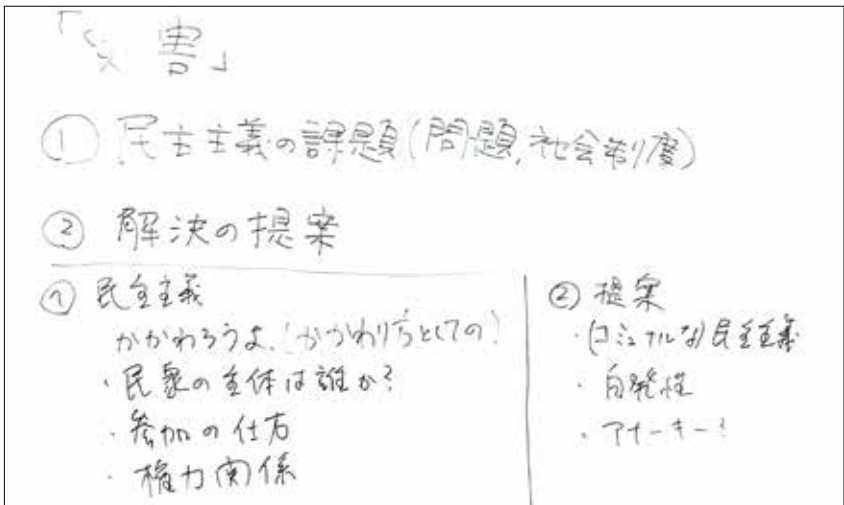 「災害」
① 民主主義の課題(問題,社会制度)
② 解決の提案
① 民主主義
かかわろうよ、(かかわり方としての)
・民衆の主体は誰か?
・参加の仕方
・権力関係
② 提案
・(コミュナルな)民主主義
・自発性
・アナーキー?